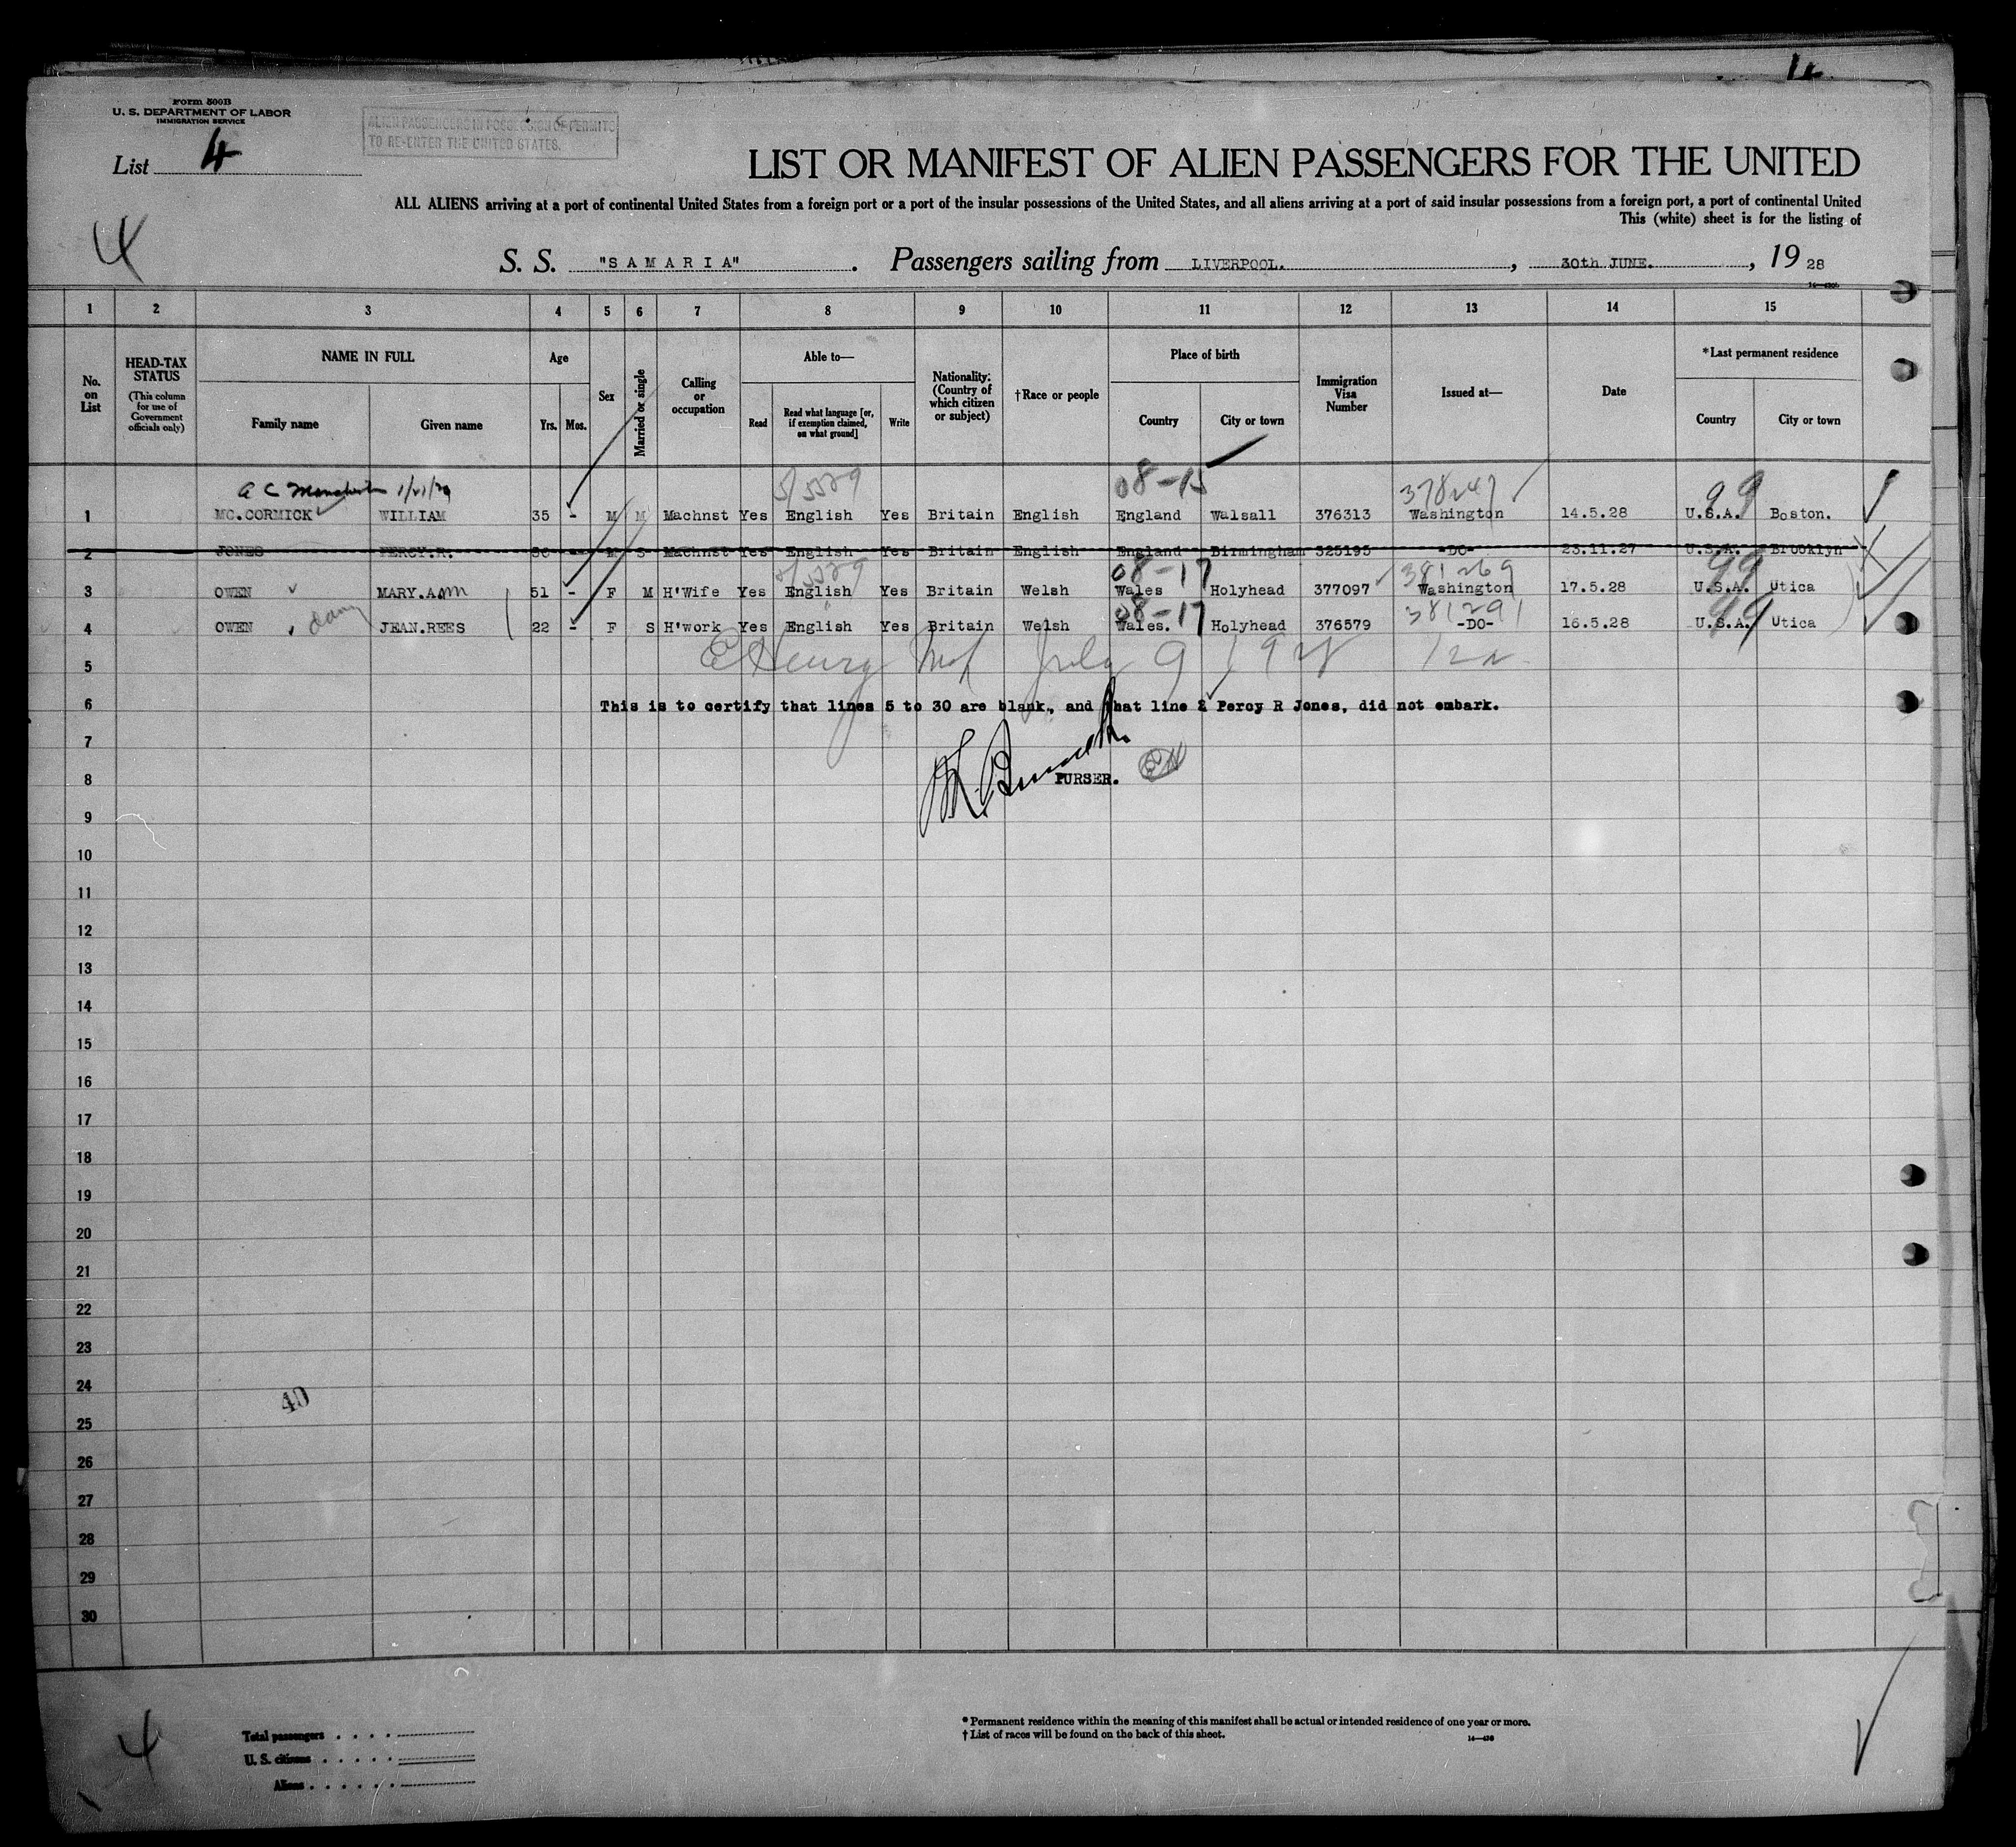 Form 500B
U. S. DEPARTMENT OF LABOR
IMMIGRATION SERVICE
ALIEN PASSENGERS IN POSSESSION OF PERMITS
TO RE-ENTER THE UNITED STATES.
List 4
4
LIST OR MANIFEST OF ALIEN PASSENGERS FOR THE UNITED
ALL ALIENS arriving at a port of continental United States from a foreign port or a port of the insular possessions of the United States, and all aliens arriving at a port of said insular possessions from a foreign port, a port of continental United
This (white) sheet is for the listing of
S. S. "SAMARIA". Passengers sailing from LIVERPOOL., 30th JUNE., 1928
1 2 3 4 5 6 7 8 9 10 11 12 13 14 15
No. on List
HEAD-TAX STATUS
(This column for use of Government officials only)
NAME IN FULL
Family name Given name
Age
Yrs. Mos.
Sex
Married or single
Calling or occupation
Able to—
Read Read what language [or, if exemption claimed, on what ground] Write
Nationality. (Country of which citizen or subject)
†Race or people
Place of birth
Country City or town
Immigration Visa Number
Issued at—
Date
*Last permanent residence
Country City or town
08-15 99
1 MC.CORMICK WILLIAM 35 - M M Machnst Yes English Yes Britain English England Walsall 376313 Washington 14.5.28 U.S.A. Boston.
2 JONES PERCY.R. - M S Machnst Yes English Yes Britain English England Birmingham 325195 -DO- 23.11.27 U.S.A. Brooklyn
08-17 381269 99
3 OWEN MARY.Ann 51 - F M H'Wife Yes English Yes Britain Welsh Wales Holyhead 377097 Washington 17.5.28 U.S.A. Utica
08-17 381291 99
4 OWEN JEAN.REES 22 - F S H'work Yes English Yes Britain Welsh Wales. Holyhead 376579 -DO- 16.5.28 U.S.A. Utica
5 July 9 1928
6 This is to certify that lines 5 to 30 are blank, and that line 2 Percy R Jones, did not embark.
7
8 PURSER.
9
10
11
12
13
14
15
16
17
18
19
20
21
22
23
24
40
25
26
27
28
29
30
4
Total passengers
U. S. citizens
Aliens
* Permanent residence within the meaning of this manifest shall be actual or intended residence of one year or more.
† List of races will be found on the back of this sheet.